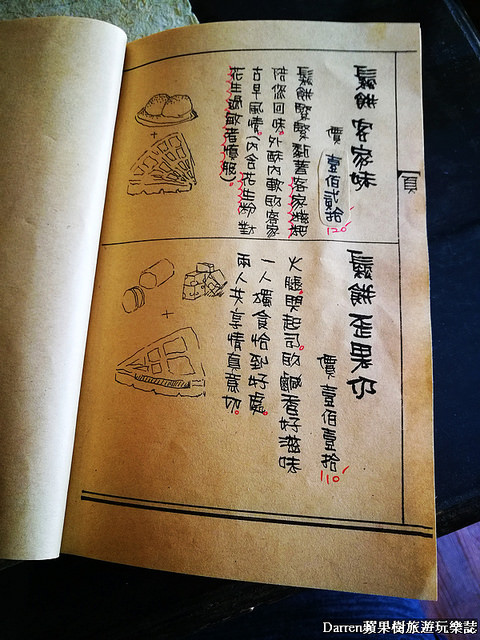 頁
鬆餅客家味
價 壹佰貳拾
120
鬆餅緊緊黏著客家糍粑
陪您回味。外酥內軟的客家
古早風情(內含花生粉對
花生過敏者慎服)。
+
鬆餅歪果仁
價 壹佰壹拾
110
火腿與起司的鹹香好滋味
一人獨食恰到好處。
兩人共享情真意切。
+
Darren蘋果樹旅遊玩樂誌